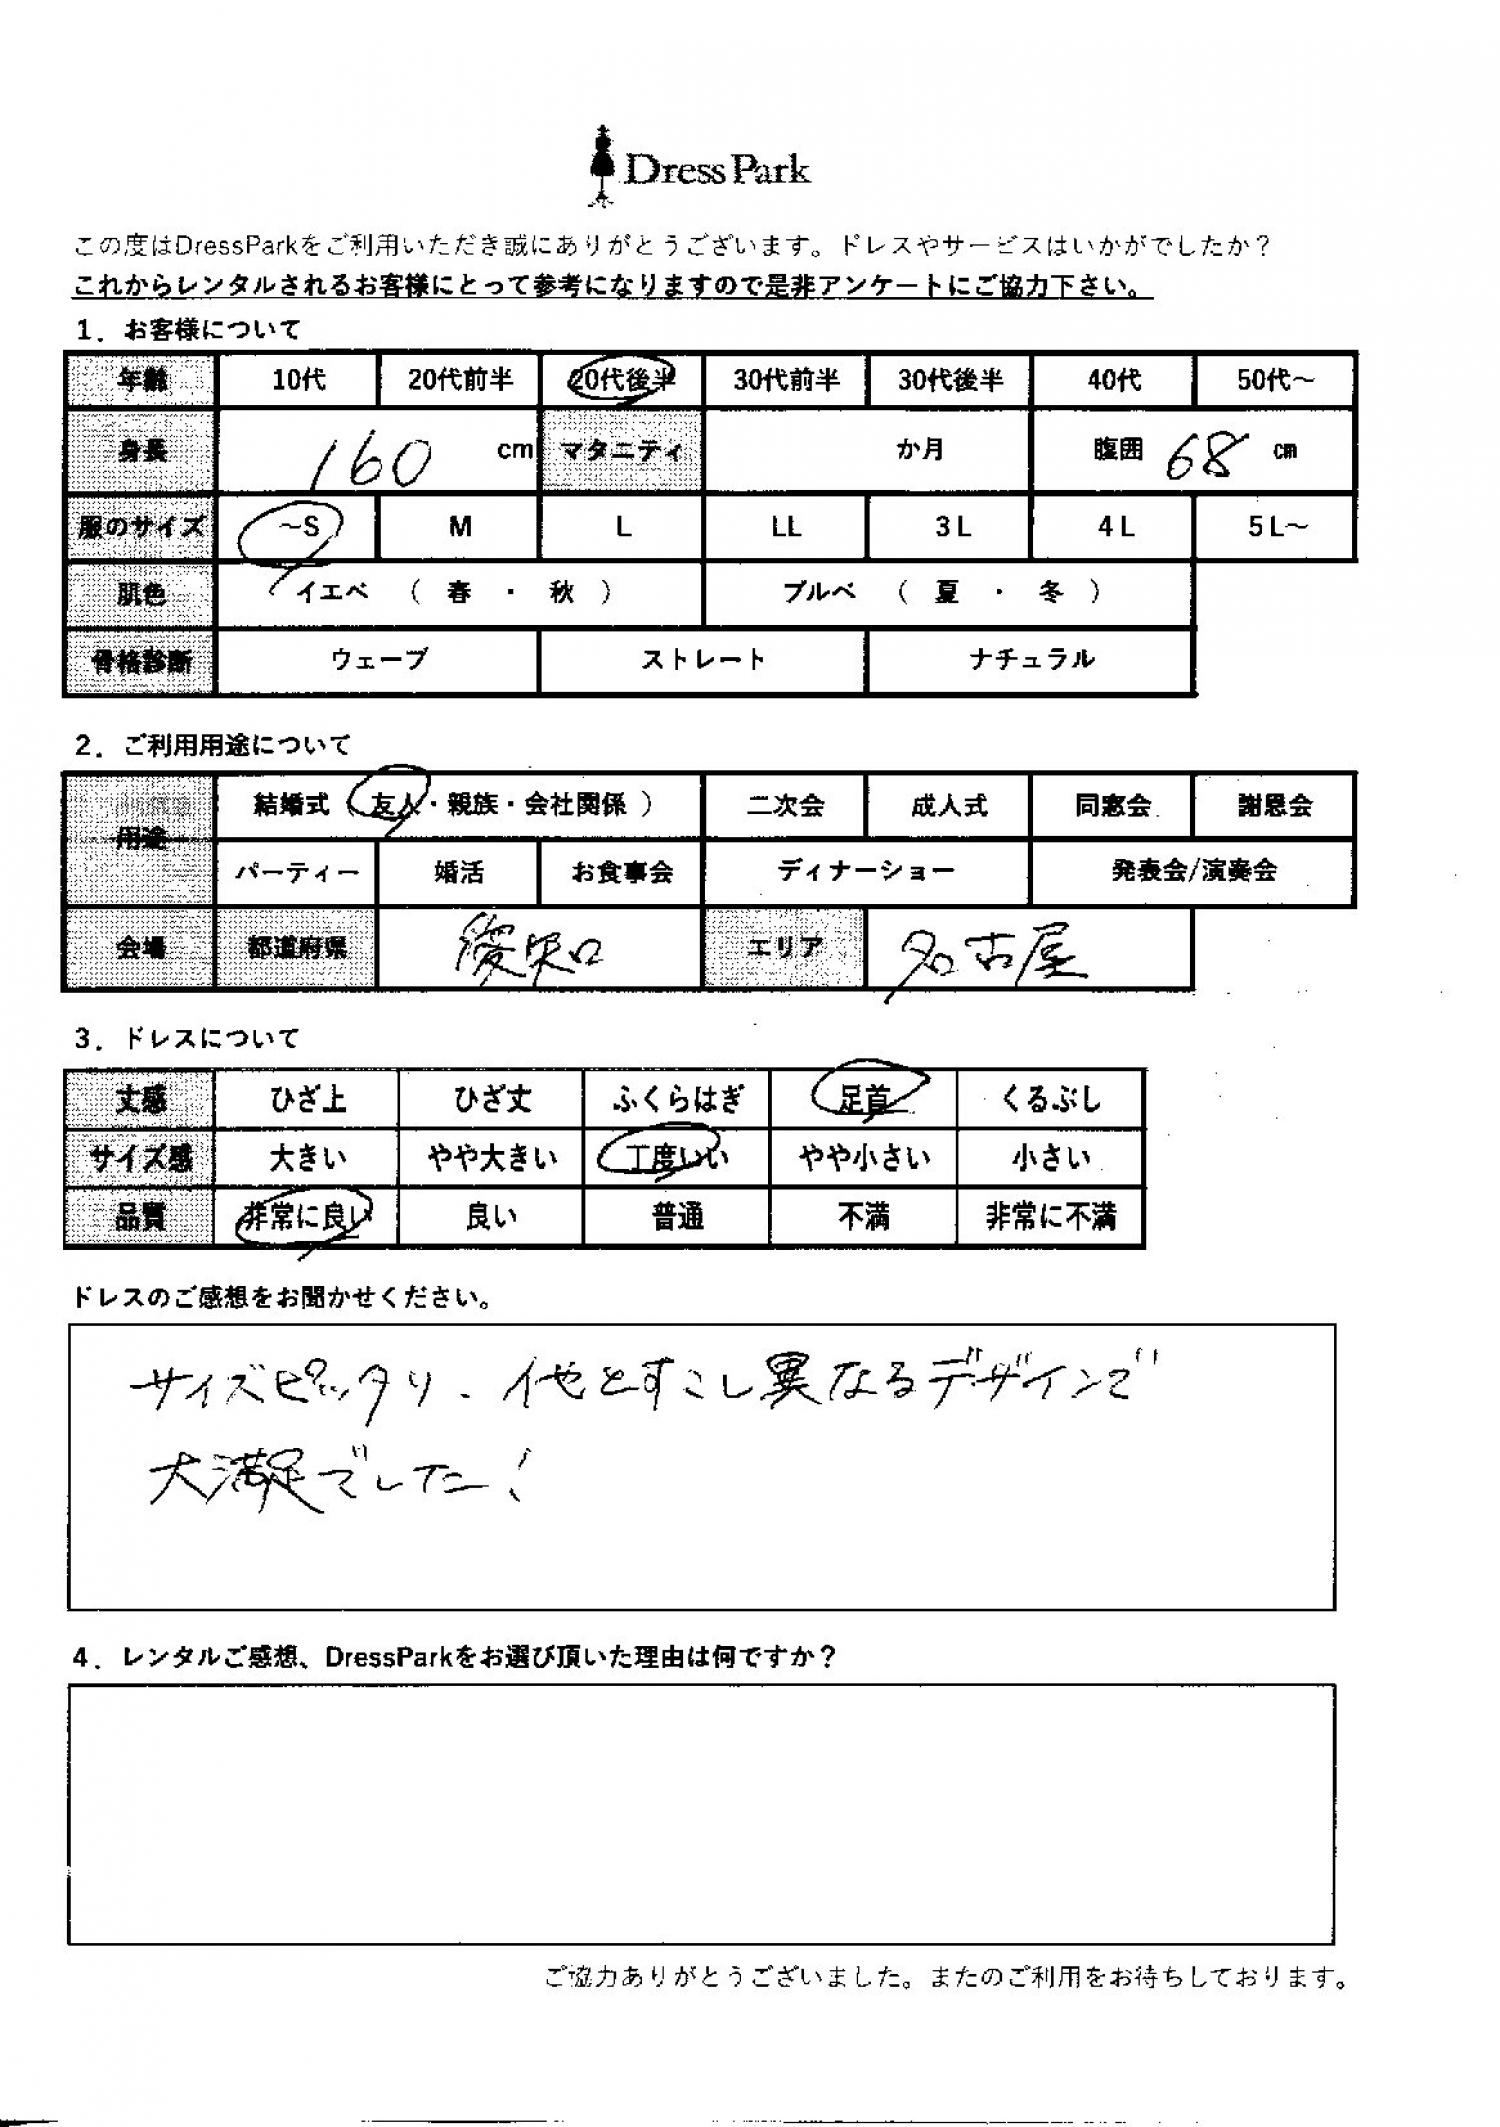 Dress Park
この度はDressParkをご利用いただき誠にありがとうございます。ドレスやサービスはいかがでしたか？
これからレンタルされるお客様にとって参考になりますので是非アンケートにご協力下さい。
1．お客様について
年齢 10代 20代前半 20代後半 30代前半 30代後半 40代 50代～
身長 160 cm マタニティ か月 腹囲 68 cm
服のサイズ ～S M L LL 3L 4L 5L～
肌色 イエベ （ 春 ・ 秋 ） ブルベ （ 夏 ・ 冬 ）
骨格診断 ウェーブ ストレート ナチュラル
2．ご利用用途について
用途 結婚式（友人・親族・会社関係） 二次会 成人式 同窓会 謝恩会
パーティー 婚活 お食事会 ディナーショー 発表会/演奏会
会場 都道府県 愛知 エリア 名古屋
3．ドレスについて
丈感 ひざ上 ひざ丈 ふくらはぎ 足首 くるぶし
サイズ感 大きい やや大きい 丁度いい やや小さい 小さい
品質 非常に良い 良い 普通 不満 非常に不満
ドレスのご感想をお聞かせください。
サイズピッタリ、他とすこし異なるデザインで
大満足でした！
4．レンタルご感想、DressParkをお選び頂いた理由は何ですか？
ご協力ありがとうございました。またのご利用をお待ちしております。